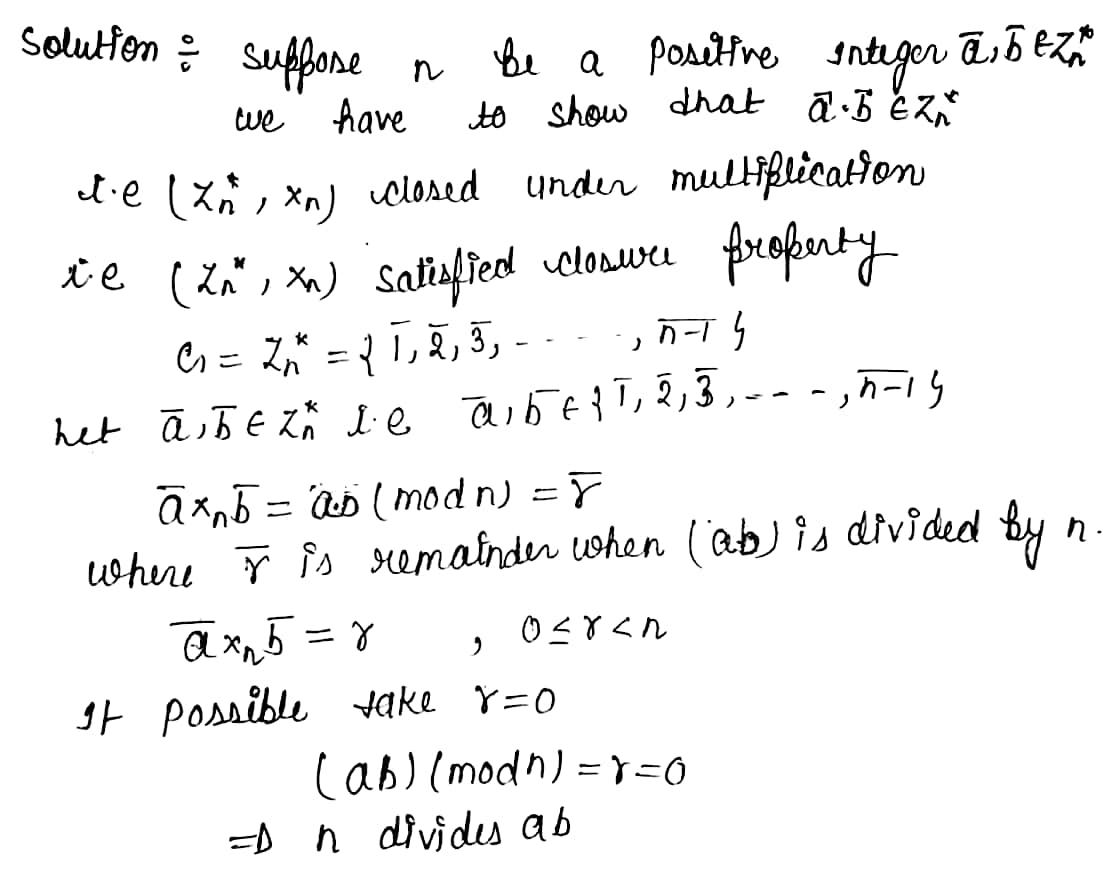 Solution ÷ suppose n be a positive integer ā, b̄ ∈ Zₙ*
we have to show that ā·b̄ ∈ Zₙ*
i.e (Zₙ*, ×ₙ) closed under multiplication
i.e (Zₙ*, ×ₙ) satisfied closure property
G = Zₙ* = { 1̄, 2̄, 3̄, - - - - -, n̅-̅1̅ }
Let ā, b̄ ∈ Zₙ* i.e ā, b̄ ∈ { 1̄, 2̄, 3̄, - - - -, n̅-̅1̅ }
ā ×ₙ b̄ = ab (mod n) = r̄
where r̄ is remainder when (ab) is divided by n.
ā ×ₙ b̄ = r , 0 ≤ r < n
If possible take r = 0
(ab) (mod n) = r = 0
⇒ n divides ab